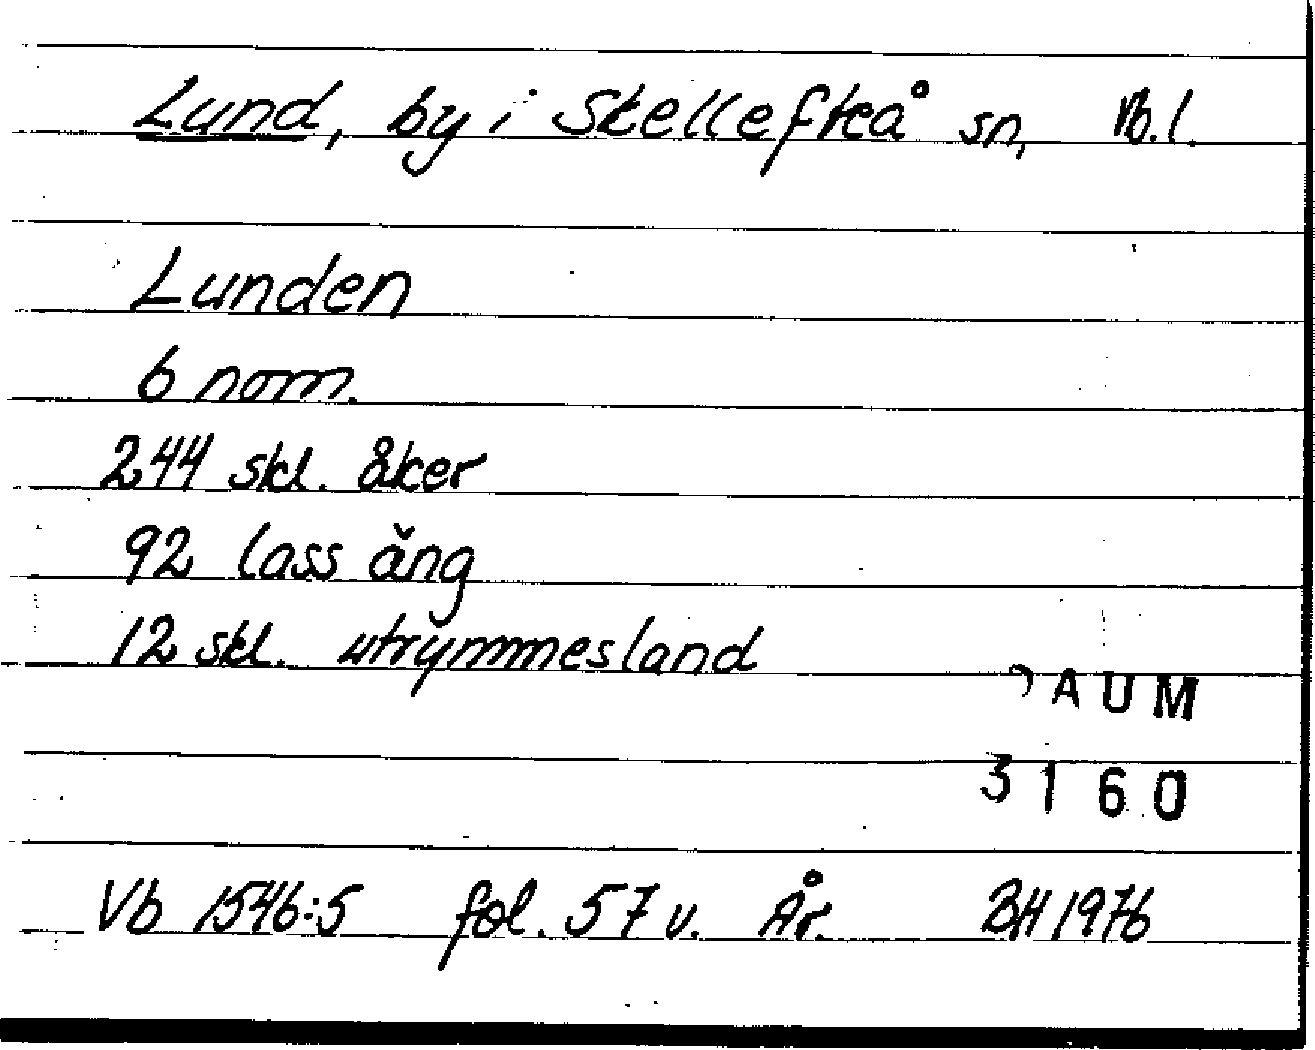 Lund, by i Skellefteå sn, Vb.l.
Lunden
6 nom.
244 skl. åker
92 lass äng
12 skl. utrymmesland
DAUM
3160
Vb 1546:5 fol. 57 v. År. BH 1976